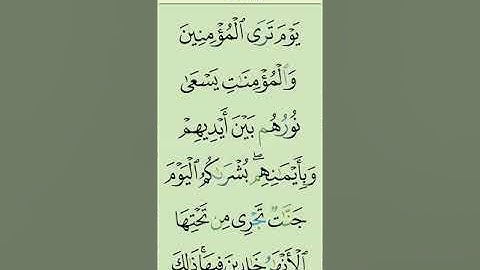 يَوۡمَ تَرَى ٱلۡمُؤۡمِنِينَ
وَٱلۡمُؤۡمِنَٰتِ يَسۡعَىٰ
نُورُهُم بَيۡنَ أَيۡدِيهِمۡ
وَبِأَيۡمَٰنِهِمۖ بُشۡرَىٰكُمُ ٱلۡيَوۡمَ
جَنَّٰتٞ تَجۡرِي مِن تَحۡتِهَا
ٱلۡأَنۡهَٰرُ خَٰلِدِينَ فِيهَاۚ ذَٰلِكَ